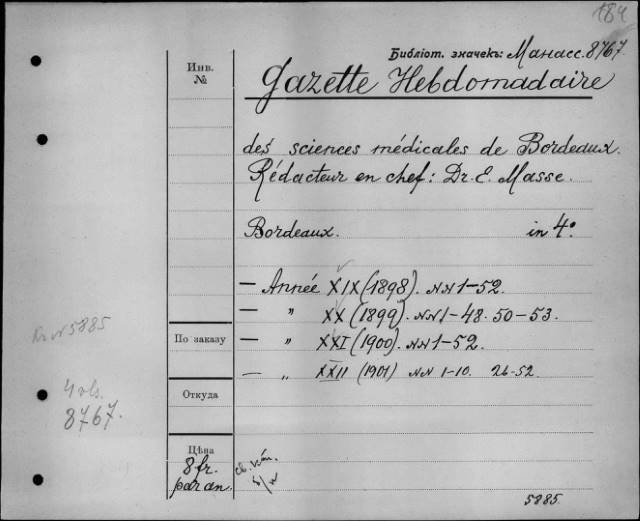 184
Библiот. значекъ: Манасс. 8767.
Инв.
№
Gazette Hebdomadaire
des sciences médicales de Bordeaux.
Rédacteur en chef: Dr. E. Masse.
Bordeaux. in 4°
— Année XIX (1898). NN 1-52.
— " XX (1899). NN 1-48. 50-53.
— " XXI (1900). NN 1-52.
— " XXII (1901) NN 1-10. 26-52
5885
По заказу
Откуда
4 vls.
8767.
Цѣна
8 fr.
par an.
5885